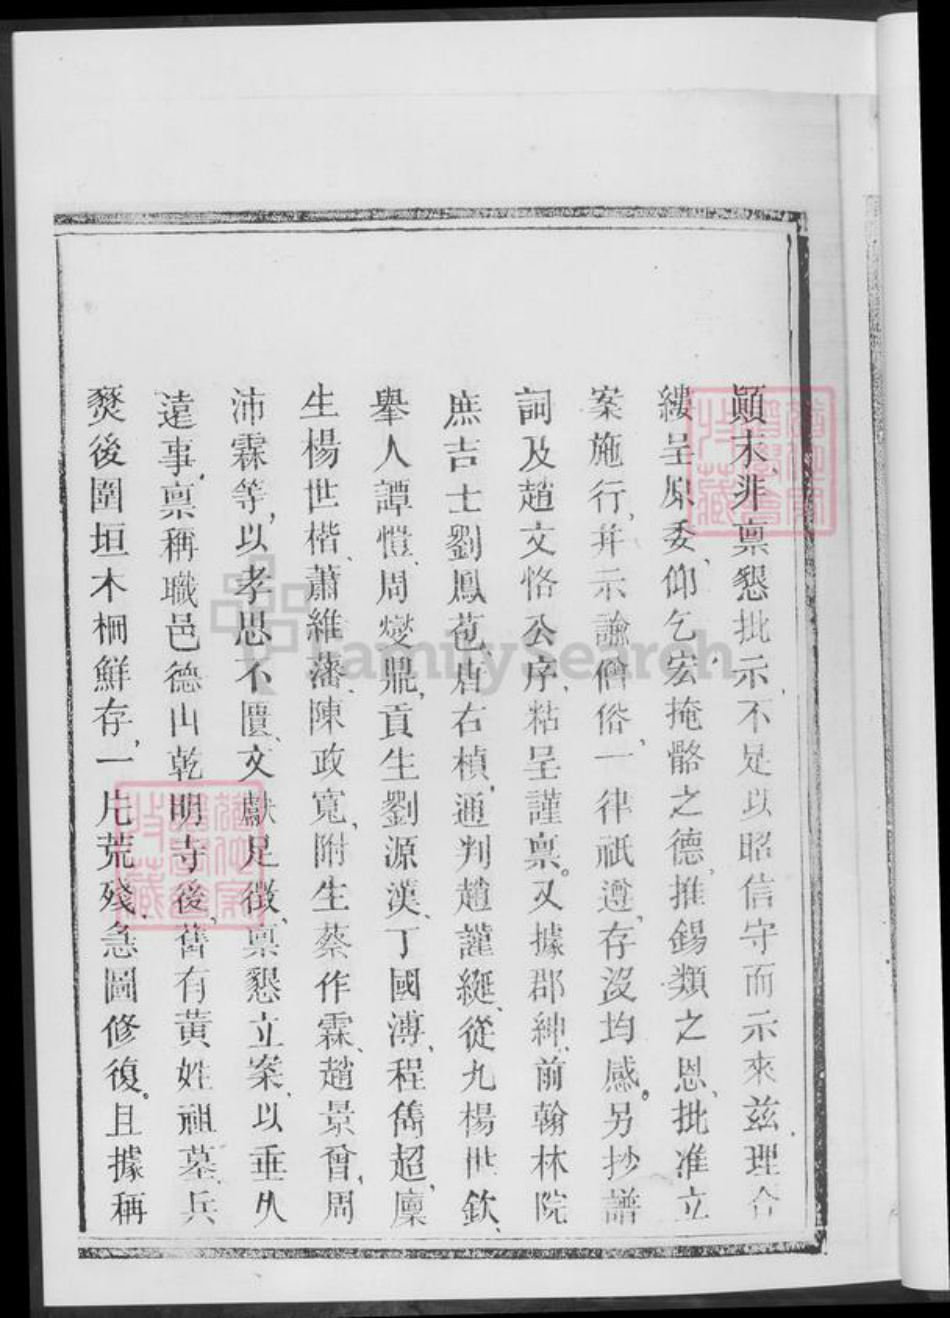 顚末、非禀懇批示、不足以昭信守而示來茲、理合
縷呈原委、仰乞宏掩骼之德、推錫類之恩、批准立
案施行、幷示諭僧俗、一律祇遵、存沒均感。另抄譜
詞及趙文恪公序、粘呈謹禀。又據郡紳、前翰林院
庶吉士劉鳳苞、唐右楨、通判趙謹綎、從九楊世欽、
舉人譚愷、周燮鼎、貢生劉源漢、丁國溥、程雋超、廩
生楊世楷、蕭維藩、陳政寬、附生蔡作霖、趙景曾、周
沛霖等、以孝思不匱、文獻足徵、禀懇立案、以垂久
遠事、禀稱職邑德山乾明寺後、舊有黃姓祖墓、兵
燹後圍垣木柵鮮存、一片荒殘、急圖修復。且據稱
FamilySearch